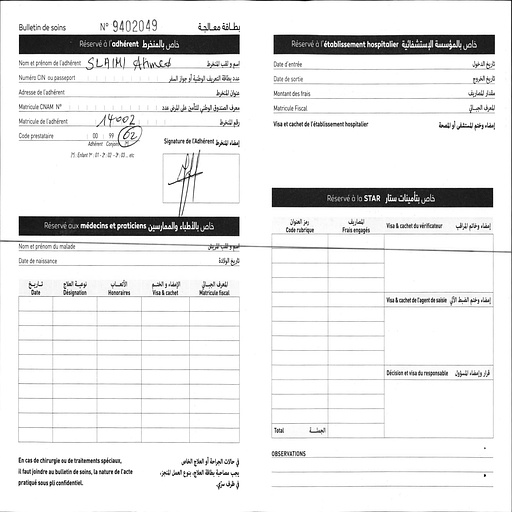 Bulletin de soins N° 9402049 بطاقة معالجة
Réservé à l'adhérent خاص بالمنخرط
Nom et prénom de l'adhérent SLAIMI Ahmed إسم و لقب المنخرط
Numéro CIN ou passeport عدد بطاقة التعريف الوطنية أو جواز السفر
Adresse de l'adhérent عنوان المنخرط
Matricule CNAM N° معرف الصندوق الوطني للتأمين على المرض عدد
Matricule de l'adhérent 14002 رقم المنخرط
Code prestataire 00 99 02
Adhérent Conjoint
(*) Enfant 1er : 01 - 2e : 02 - 3e : 03 ... etc
Signature de l'Adhérent إمضاء المنخرط
Réservé aux médecins et praticiens خاص بالأطباء والممارسين
Nom et prénom du malade إسم و لقب المريض
Date de naissance تاريخ الولادة
تاريخ نوعية العلاج الأتعاب الإمضاء و الختم المعرف الجبائي
Date Désignation Honoraires Visa & cachet Matricule fiscal
En cas de chirurgie ou de traitements spéciaux,
il faut joindre au bulletin de soins, la nature de l'acte
pratiqué sous pli confidentiel.
في حالات الجراحة أو العلاج الخاص
يجب مصاحبة بطاقة العلاج، بنوع العمل المنجز،
في ظرف سري.
Réservé à l'établissement hospitalier خاص بالمؤسسة الإستشفائية
Date d'entrée تاريخ الدخول
Date de sortie تاريخ الخروج
Montant des frais مقدار المصاريف
Matricule Fiscal المعرف الجبائي
Visa et cachet de l'établissement hospitalier إمضاء وختم المستشفى أو المصحة
Réservé à la STAR خاص بتأمينات ستار
رمز العنوان المصاريف
Code rubrique Frais engagés
Visa & cachet du vérificateur إمضاء وخاتم المراقب
Visa & cachet de l'agent de saisie إمضاء وختم الضبط الآلي
Décision et visa du responsable قرار وإمضاء المسؤول
Total الجملة
OBSERVATIONS